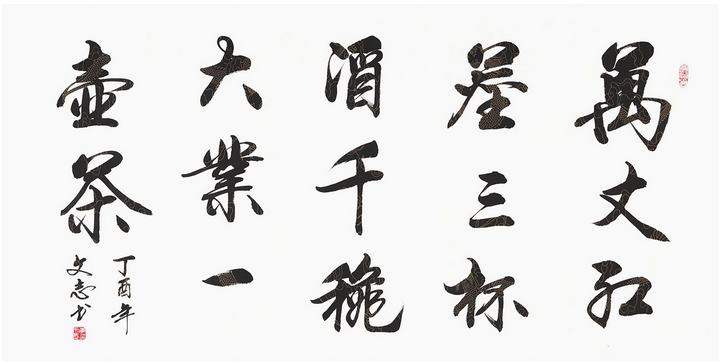 萬丈红
塵三杯
酒千穐
大業一
壺茶
丁酉年
文志书